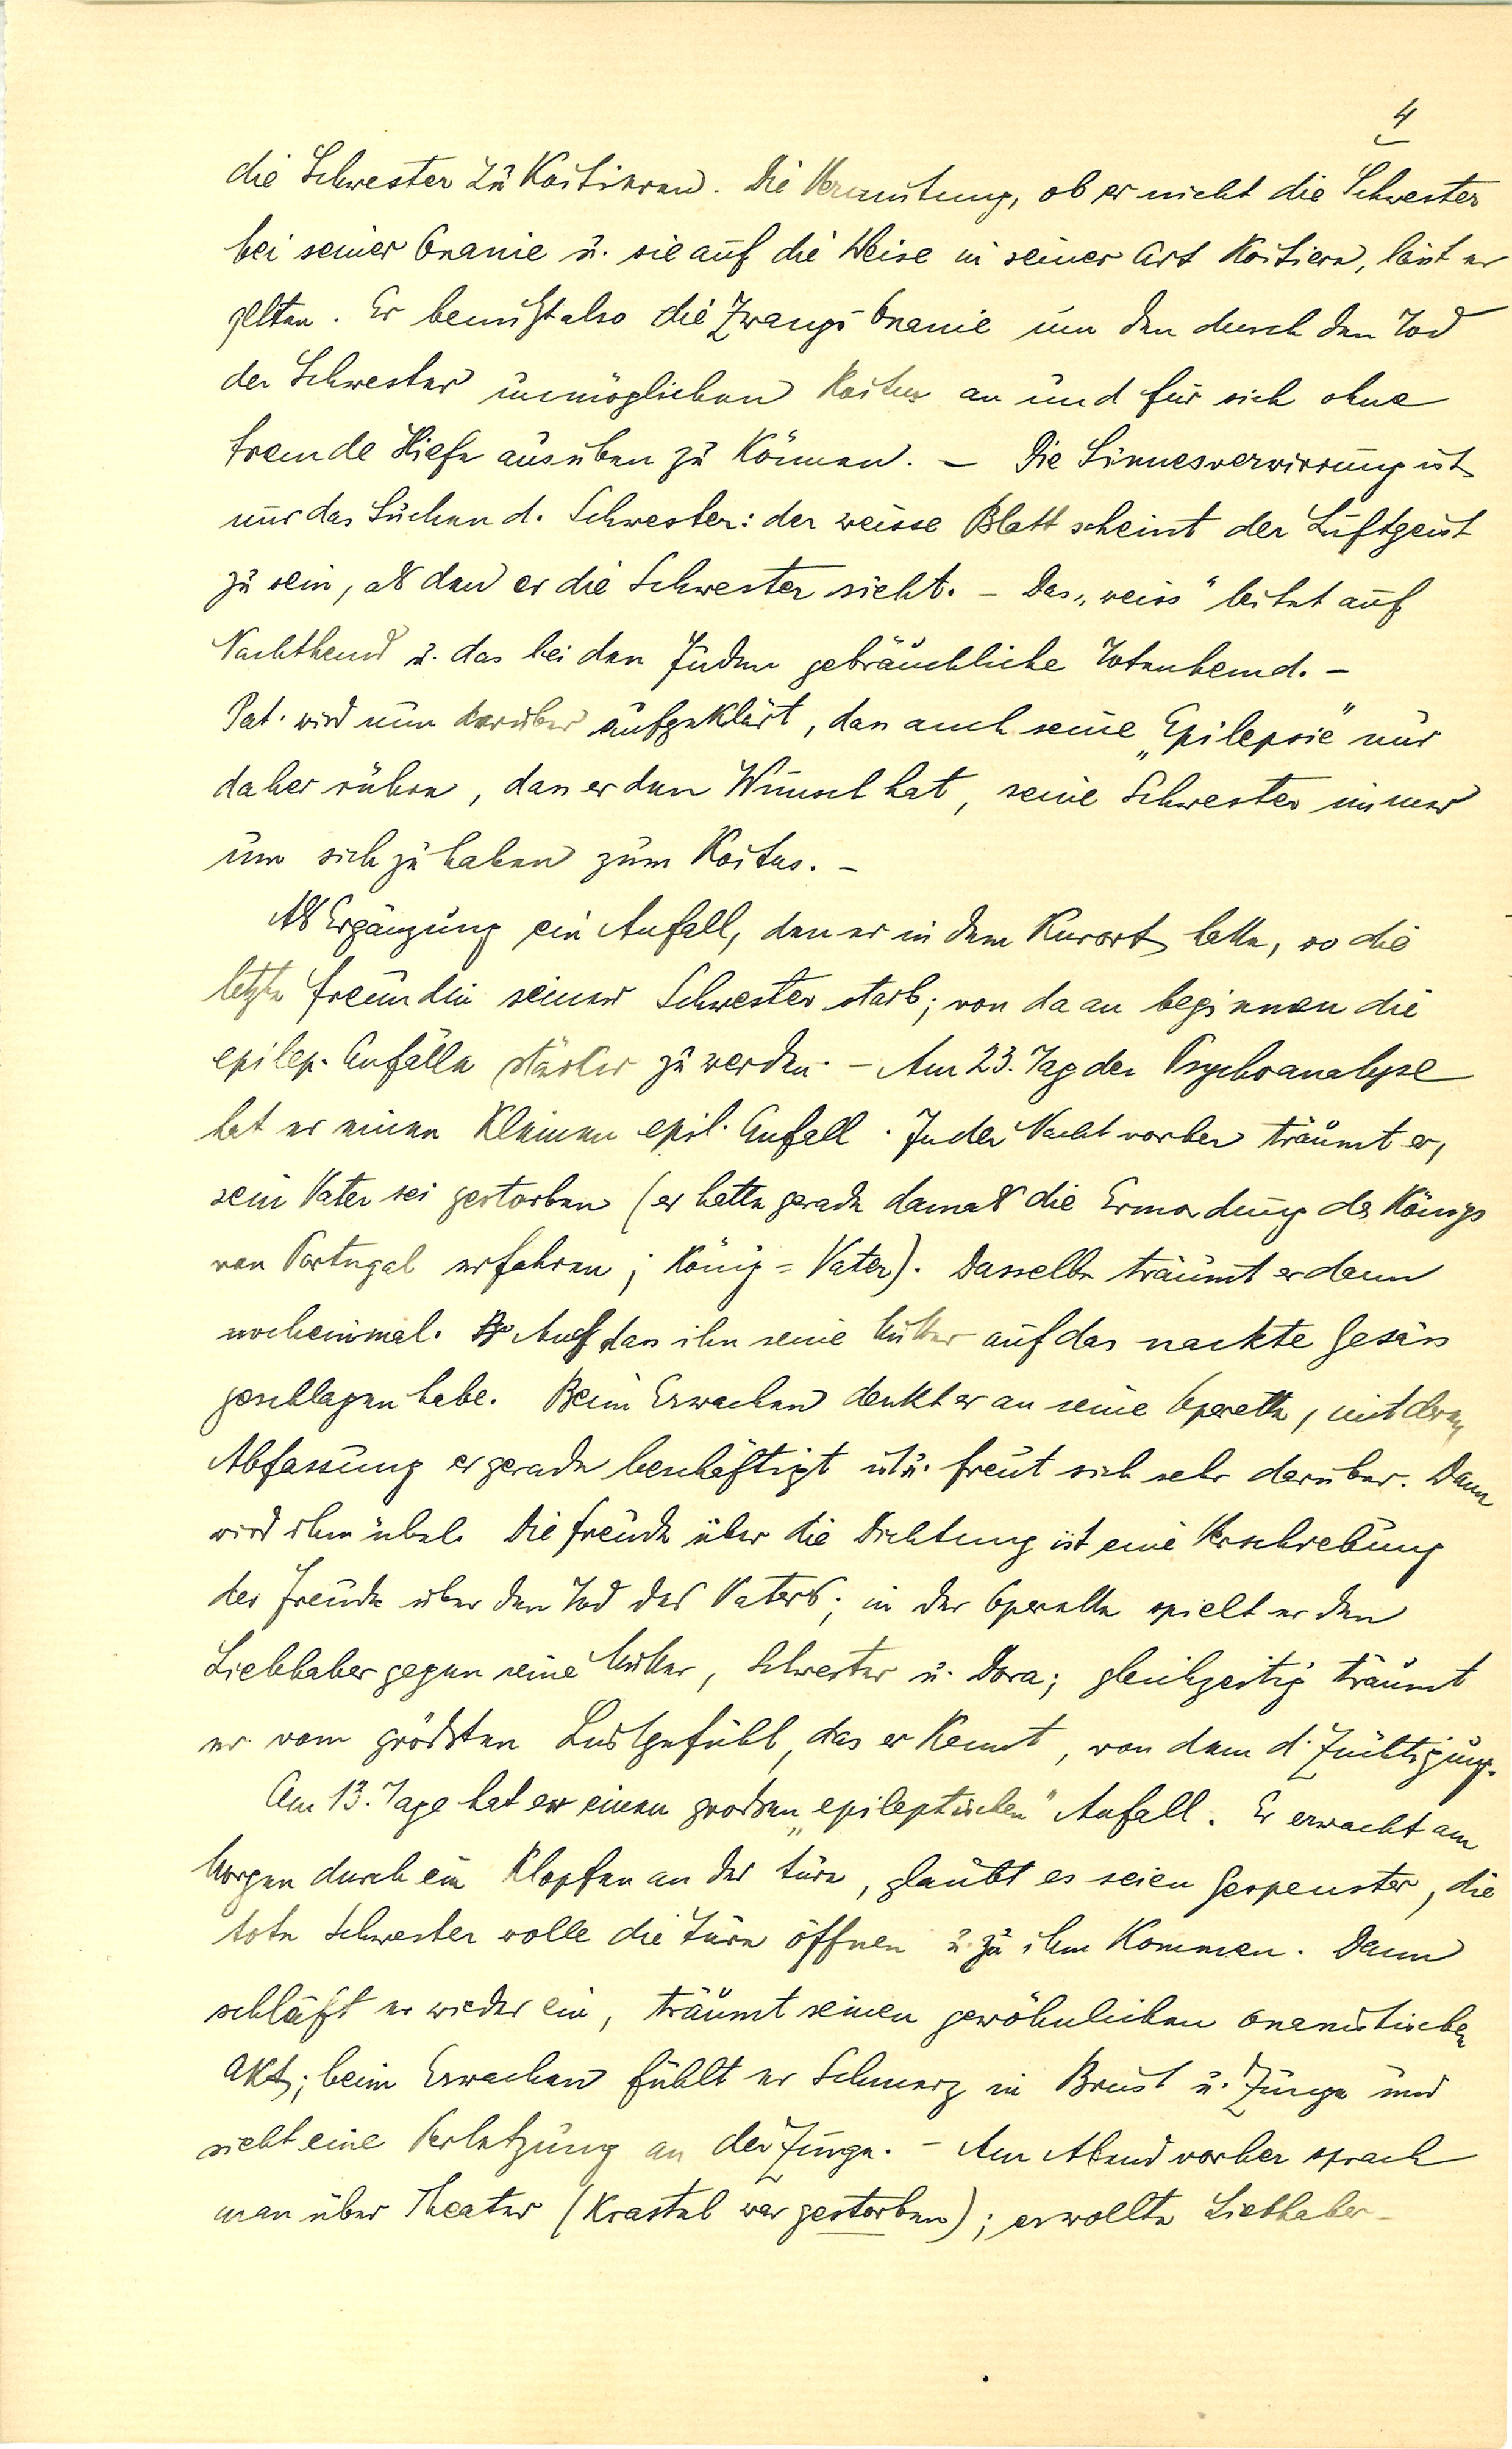 4
die Schwester zu Koitieren. Die Vermutung, ob er nicht die Schwester
bei seiner Onanie u. sie auf die Weise in seiner Art Koitiere, lässt er
gelten. Er benützt also die Zwangs-Onanie um den durch den Tod
der Schwester unmöglichen Koitus an und für sich ohne
fremde Hilfe ausüben zu Können. – Die Sinnesverwirrung ist
nur das Suchen d. Schwester: der weisse Blatt scheint der Luftgeist
zu sein, als den er die Schwester sieht. – Das „weiss" leitet auf
Nachthemd u. das bei den Juden gebräuchliche Totenhemd. –
Pat. wird nun darüber aufgeklärt, dass auch seine „Epilepsie" nur
daher rühre, dass er den Wunsch hat, seine Schwester immer
um sich zu haben zum Koitus. –
Als Ergänzung ein Anfall, den er in dem Kurort hatte, wo die
letzte Freundin seiner Schwester starb; von da an beginnen die
epilep. Anfälle stärker zu werden. – Am 23. Tag der Psychoanalyse
hat er einen Kleinen epil. Anfall. In der Nacht vorher träumt er,
sein Vater sei gestorben (er hatte gerade damals die Ermordung des Königs
von Portugal erfahren; König = Vater). Dasselbe träumt er dann
nocheinmal. Auch dass ihn seine Mutter auf das nackte Gesäss
geschlagen habe. Beim Erwachen denkt er an seine Operette, mit deren
Abfassung er gerade beschäftigt ist u. freut sich sehr darüber. Dann
wird ihm übel. Die Freude über die Dichtung ist eine Verschiebung
der Freude über den Tod des Vaters; in der Operette spielt er den
Liebhaber gegen seine Mutter, Schwester u. Dora; gleichzeitig träumt
er vom größten Lustgefühl, das er Kennt, von dem d. Züchtigung.
Am 13. Tage hat er einen großen „epileptischen" Anfall. Er erwacht am
Morgen durch ein Klopfen an der Türe, glaubt es seien Gespenster, die
tote Schwester wolle die Türe öffnen u. zu ihm Kommen. Dann
schläft er wieder ein, träumt seinen gewöhnlichen onanistischen
Akt; beim Erwachen fühlt er Schmerz in Brust u. Zunge und
sieht eine Verletzung an der Zunge. – Am Abend vorher sprach
man über Theater (Krastel war gestorben); er wollte Liebhaber-